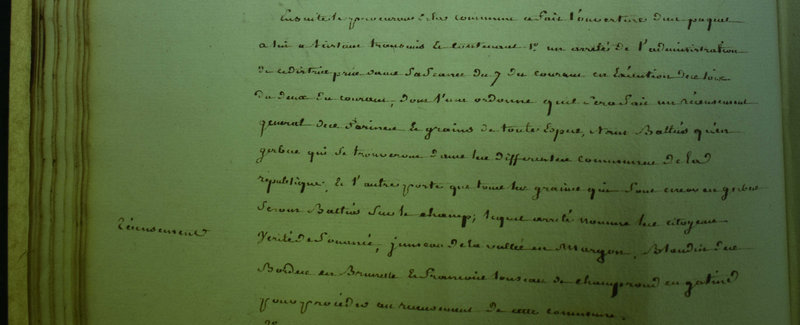 Ensuite le procureur de la commune a fait l'ouverture d'un paquet
a lui a l'instant transmis & contenant 1º un arrêté de l'administration
de ce district prise dans sa séance du 7 du courant en exécution des loix
du deux du courant, dont l'une ordonne qu'il sera fait un récensement
general des farines & grains de toute espece, tant Battus qu'en
gerbes qui se trouveront dans les differentes communes de la
republique, & l'autre porte que tous les grains qui sont encor en gerbes
seront Battus sur le champ; lequel arrêté nomme les citoyens
récensement
Verité de Souancé, juneau de la vallée en Margon, Blondin des
Bordes en Brunelle & françois louseau de champrond en gatine
pour procéder au recensement de cette commune.